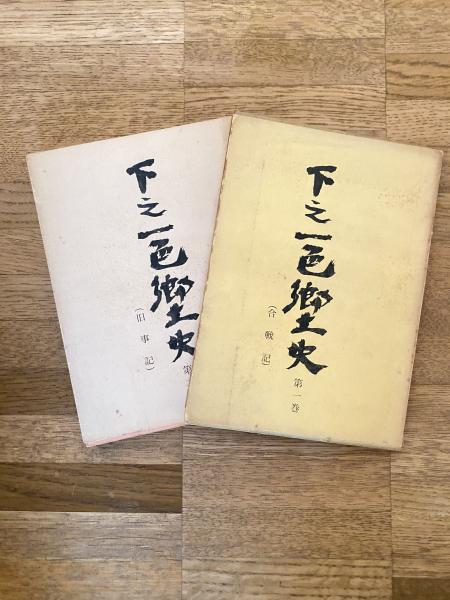 下之一色郷土史
(旧事記)
第
下之一色郷土史
(合戦記)
第一巻